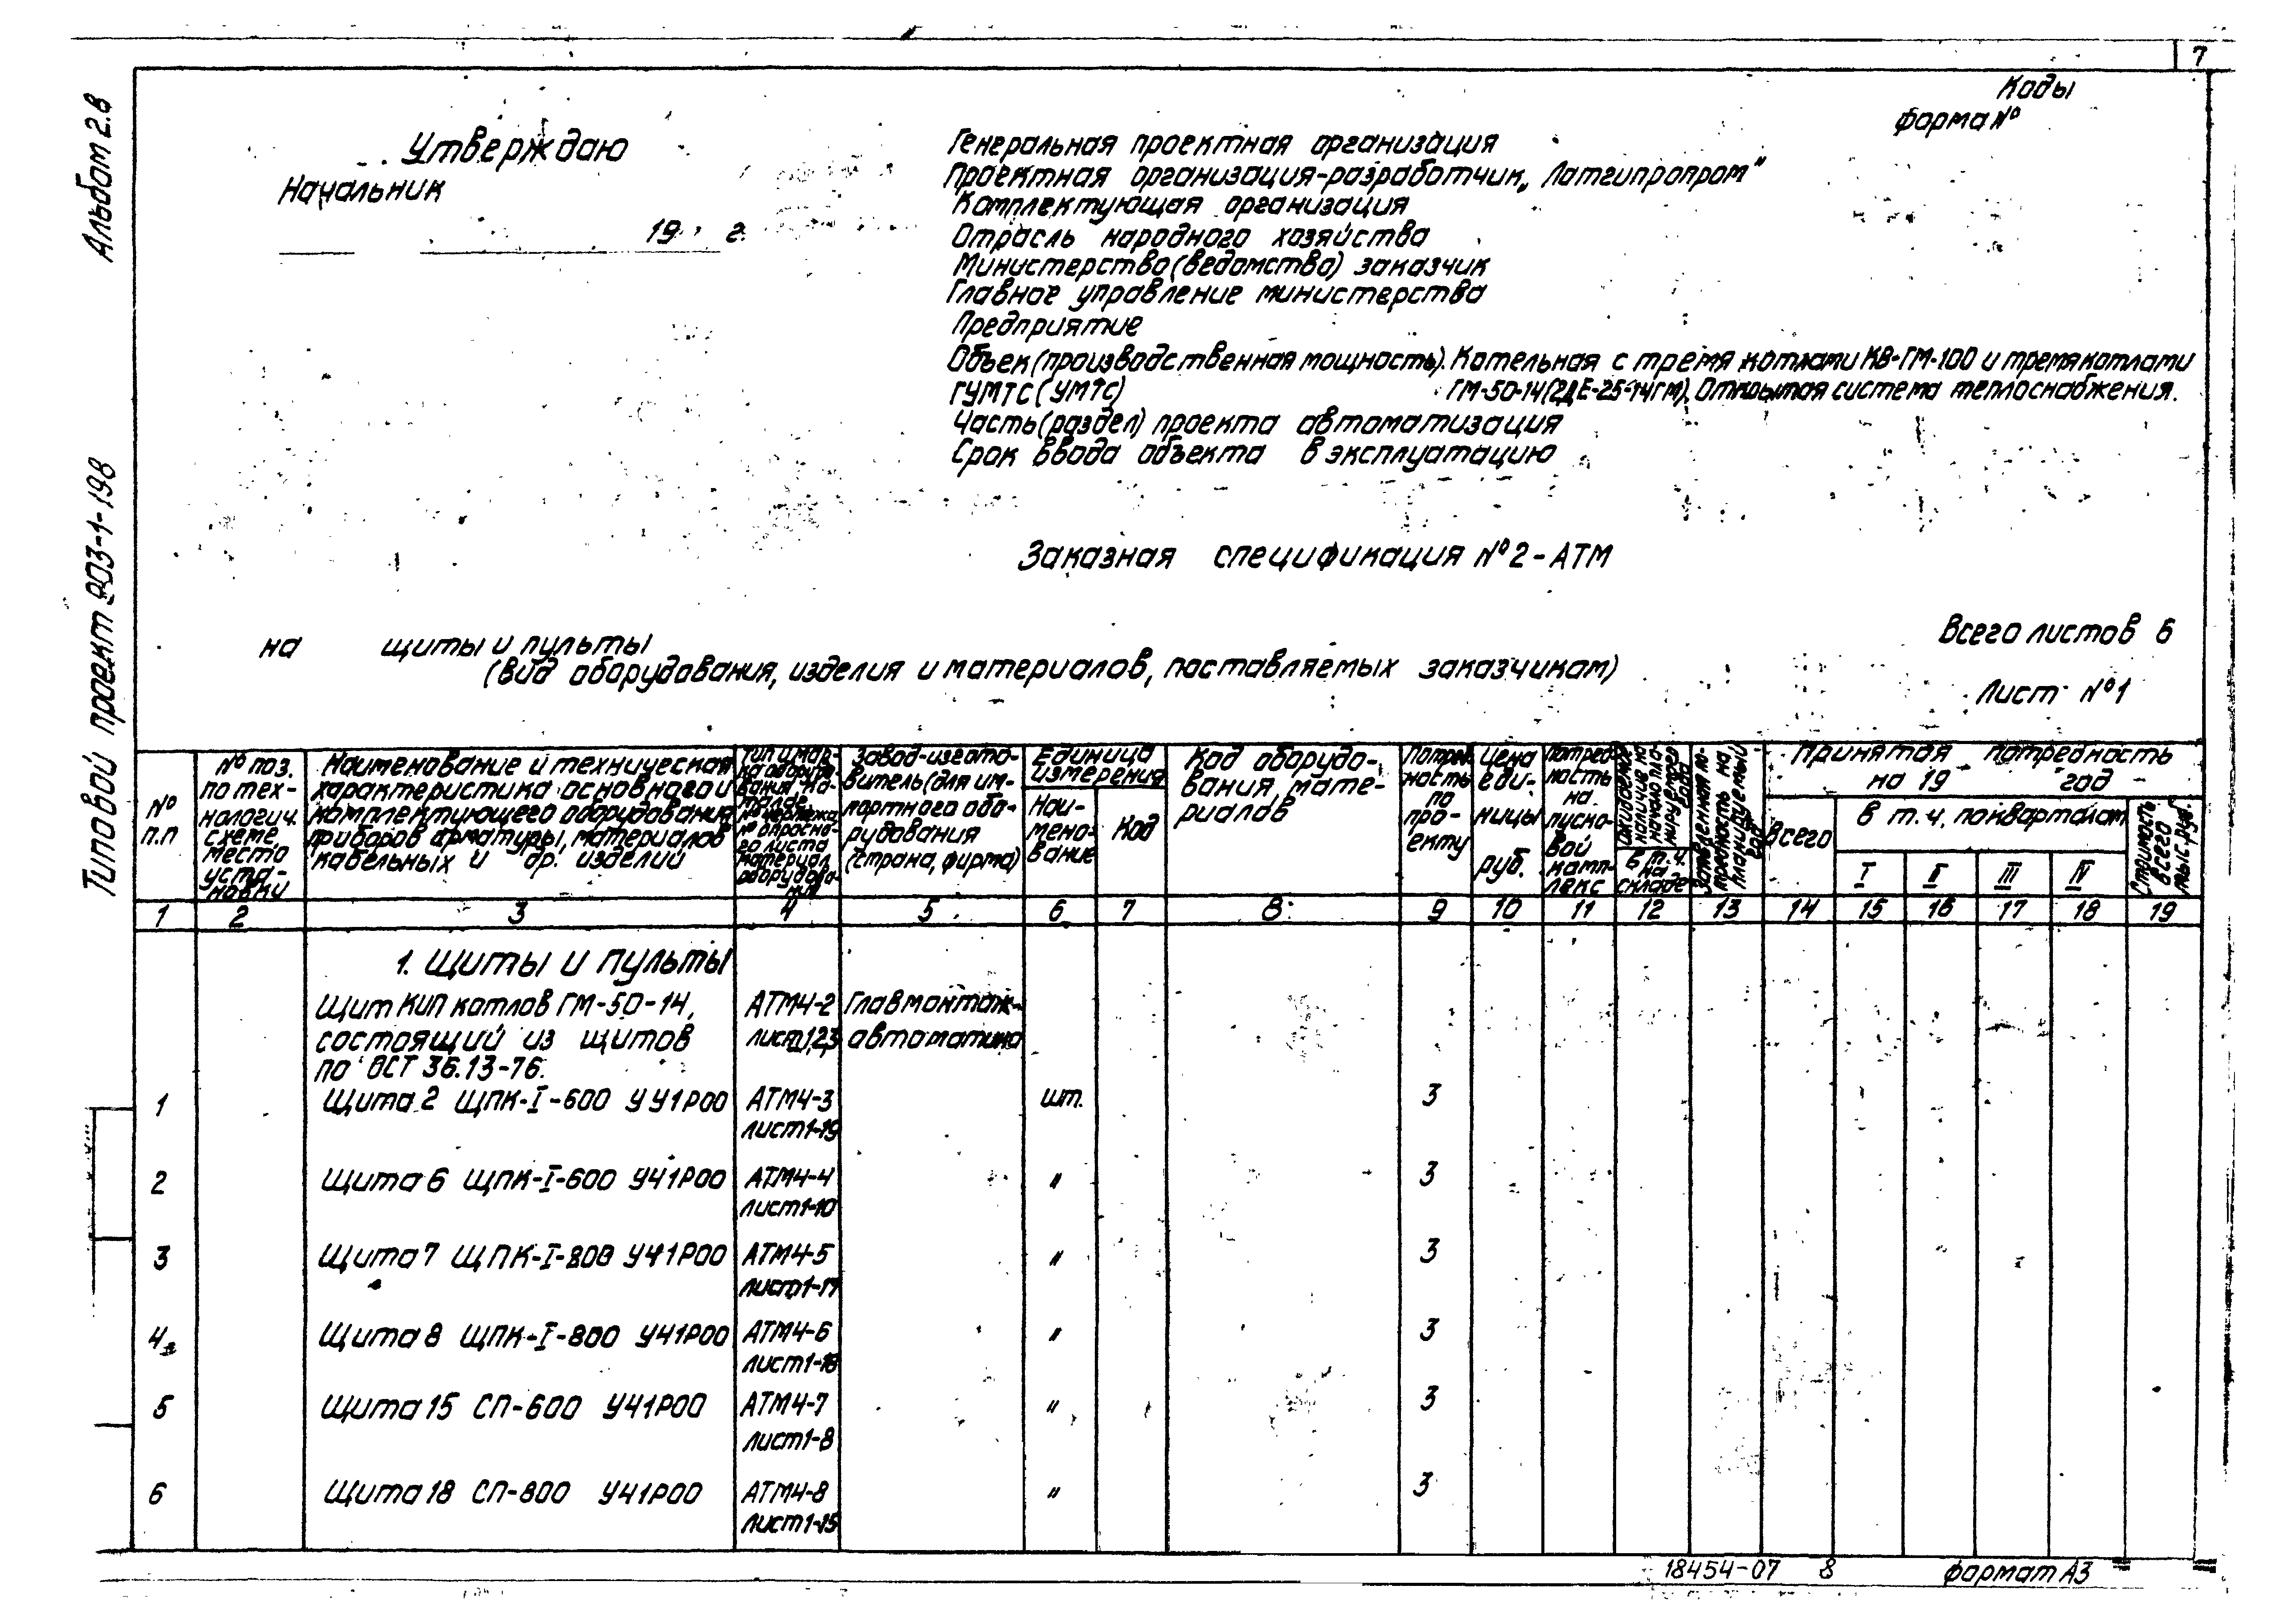 7
Коды
форма №
Альбом 2.8
Типовой проект 903-1-198
Утверждаю
Начальник
19 г.
Генеральная проектная организация
Проектная организация-разработчик „Латгипропром"
Комплектующая организация
Отрасль народного хозяйства
Министерство (ведомство) заказчик
Главное управление министерства
Предприятие
Объек (производственная мощность). Котельная с тремя котлами КВ-ГМ-100 и тремя котлами
ГУМТС (УМТС) ГМ-50-14 (2ДЕ-25-14ГМ). Открытая система теплоснабжения.
Часть (раздел) проекта автоматизация
Срок ввода объекта в эксплуатацию
Заказная спецификация №2-АТМ
Всего листов 6
на щиты и пульты
(вид оборудования, изделия и материалов, поставляемых заказчикам)
Лист №1
№ п.п
№ поз. по тех-нологич. схеме, места уста-новки
Наименование и техническая характеристика основного и комплектующего оборудования, приборов арматуры, материалов кабельных и др. изделий
Тип и мар-ка оборудо-вания ка-талог, № чертежа № опросно-го листа материал оборудова-ния
Завод-изгото-витель (для им-портного обо-рудования (страна, фирма)
Единица измерения
Наи-мено-вание
Код
Код оборудо-вания, мате-риалов
Потреб-ность по про-екту
Цена еди-ницы руб.
Потреб-ность на пуско-вой комп-лекс
Ожидаемое наличие на начало пла-нируемого года
В т.ч. на складе
Заявленная по-требность на планируемый год
Принятая потребность на 19 год
Всего
в т.ч. по кварталам
I II III IV
Стоимость всего тыс. руб.
1 2 3 4 5 6 7 8 9 10 11 12 13 14 15 16 17 18 19
1. Щиты и пульты
Щит КИП котлов ГМ-50-14, АТМ4-2 Главмонтаж-
состоящий из щитов лист 1,2,3 автоматика
по ОСТ 36.13-76.
1 Щита 2 ЩПК-I-600 УУ1Р00 АТМ4-3 шт. 3
лист 1-19
2 Щита 6 ЩПК-I-600 У41Р00 АТМ4-4 " 3
лист 1-10
3 Щита 7 ЩПК-I-800 У41Р00 АТМ4-5 " 3
лист 1-17
4 Щита 8 ЩПК-I-800 У41Р00 АТМ4-6 " 3
лист 1-18
5 Щита 15 СП-600 У41Р00 АТМ4-7 " 3
лист 1-8
6 Щита 18 СП-800 У41Р00 АТМ4-8 " 3
лист 1-15
18454-07 8 формат А3